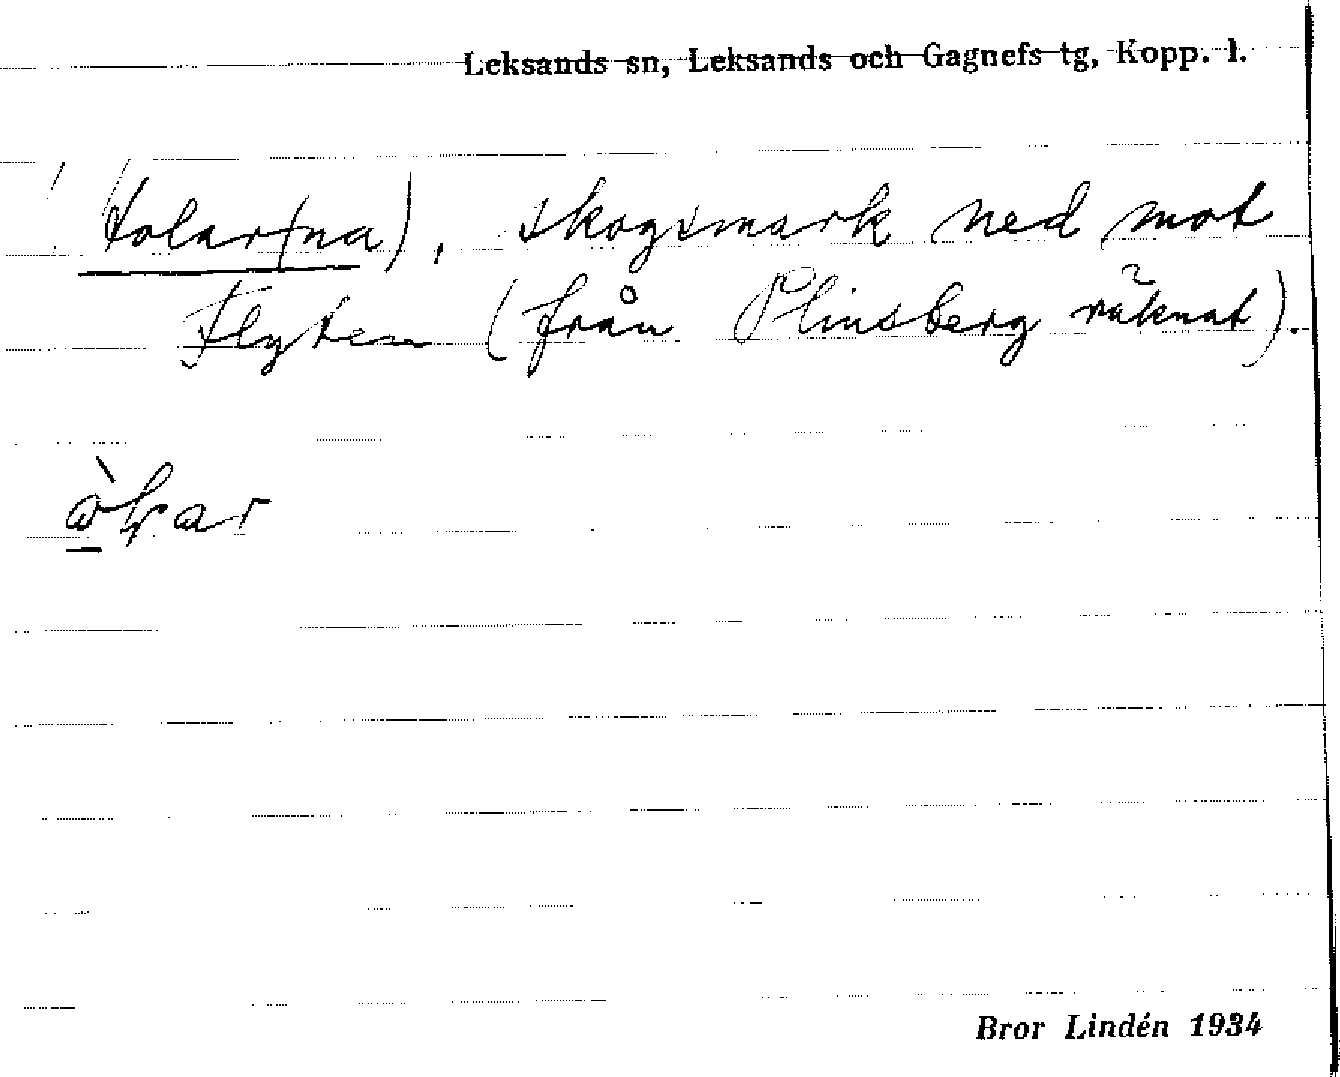 Leksands sn, Leksands och Gagnefs tg, Kopp. l.
tolar(na), skogsmark ned mot
Flyten (från Plintsberg räknat).
Bror Lindén 1934